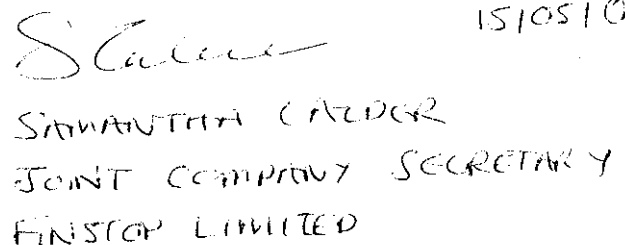 S Calder 15/05/0
SAMANTHA CALDER
JOINT COMPANY SECRETARY
FINSTOP LIMITED